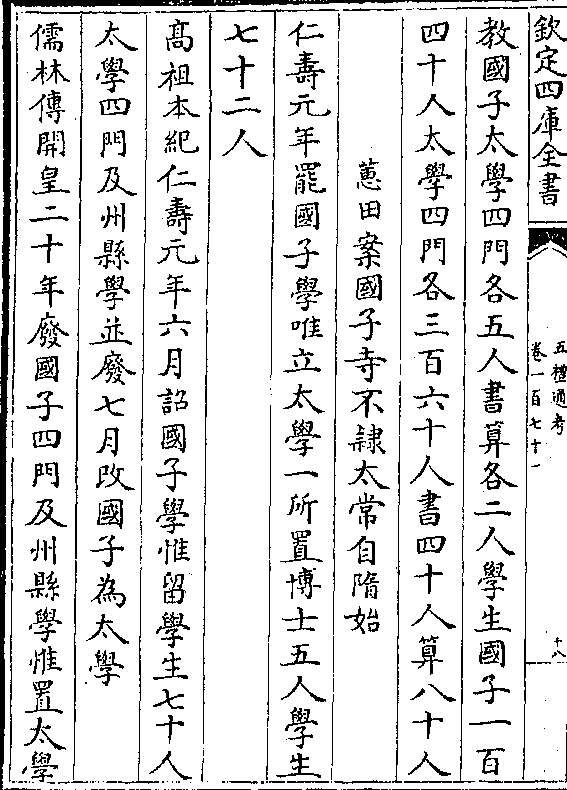 欽定四庫全書
五禮通考
卷一百七十一
十八
教國子太學四門各五人書算各二人學生國子一百
四十人太學四門各三百六十人書四十人算八十人
蕙田案國子寺不隷太常自隋始
仁壽元年罷國子學唯立太學一所置博士五人學生
七十二人
髙祖本紀仁壽元年六月詔國子學惟留學生七十人
太學四門及州縣學並廢七月改國子為太學
儒林傳開皇二十年廢國子四門及州縣學惟置太學